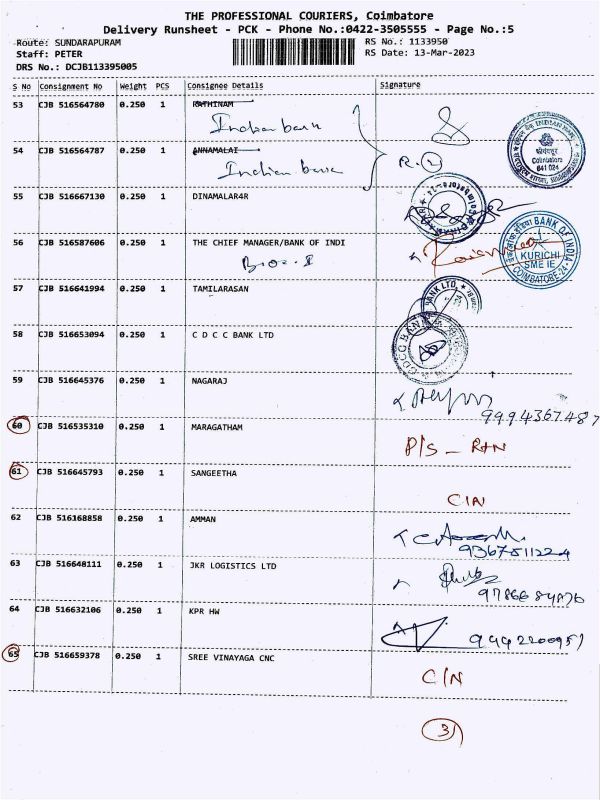 THE PROFESSIONAL COURIERS, Coimbatore
Delivery Runsheet - PCK - Phone No.:0422-3505555 - Page No.:5
Route: SUNDARAPURAM RS No.: 1133950
Staff: PETER RS Date: 13-Mar-2023
DRS No.: DCJB113395005
S No Consignment No Weight PCS Consignee Details Signature
53 CJB 516564780 0.250 1 RATHINAM
Indian bank
54 CJB 516564787 0.250 1 ANNAMALAI
Indian bank
Coimbatore
641 024
55 CJB 516667130 0.250 1 DINAMALAR4R
56 CJB 516587606 0.250 1 THE CHIEF MANAGER/BANK OF INDI
BANK OF INDIA
KURICHI
SME IE
COIMBATORE-24
57 CJB 516641994 0.250 1 TAMILARASAN
BANK LTD.
58 CJB 516653094 0.250 1 C D C C BANK LTD
CDCC BANK
59 CJB 516645376 0.250 1 NAGARAJ
9994367487
60 CJB 516535310 0.250 1 MARAGATHAM
P/S - RTN
61 CJB 516645793 0.250 1 SANGEETHA
C/N
62 CJB 516168858 0.250 1 AMMAN
9367511224
63 CJB 516648111 0.250 1 JKR LOGISTICS LTD
64 CJB 516632106 0.250 1 KPR HW
9442200951
65 CJB 516659378 0.250 1 SREE VINAYAGA CNC
C/N
3